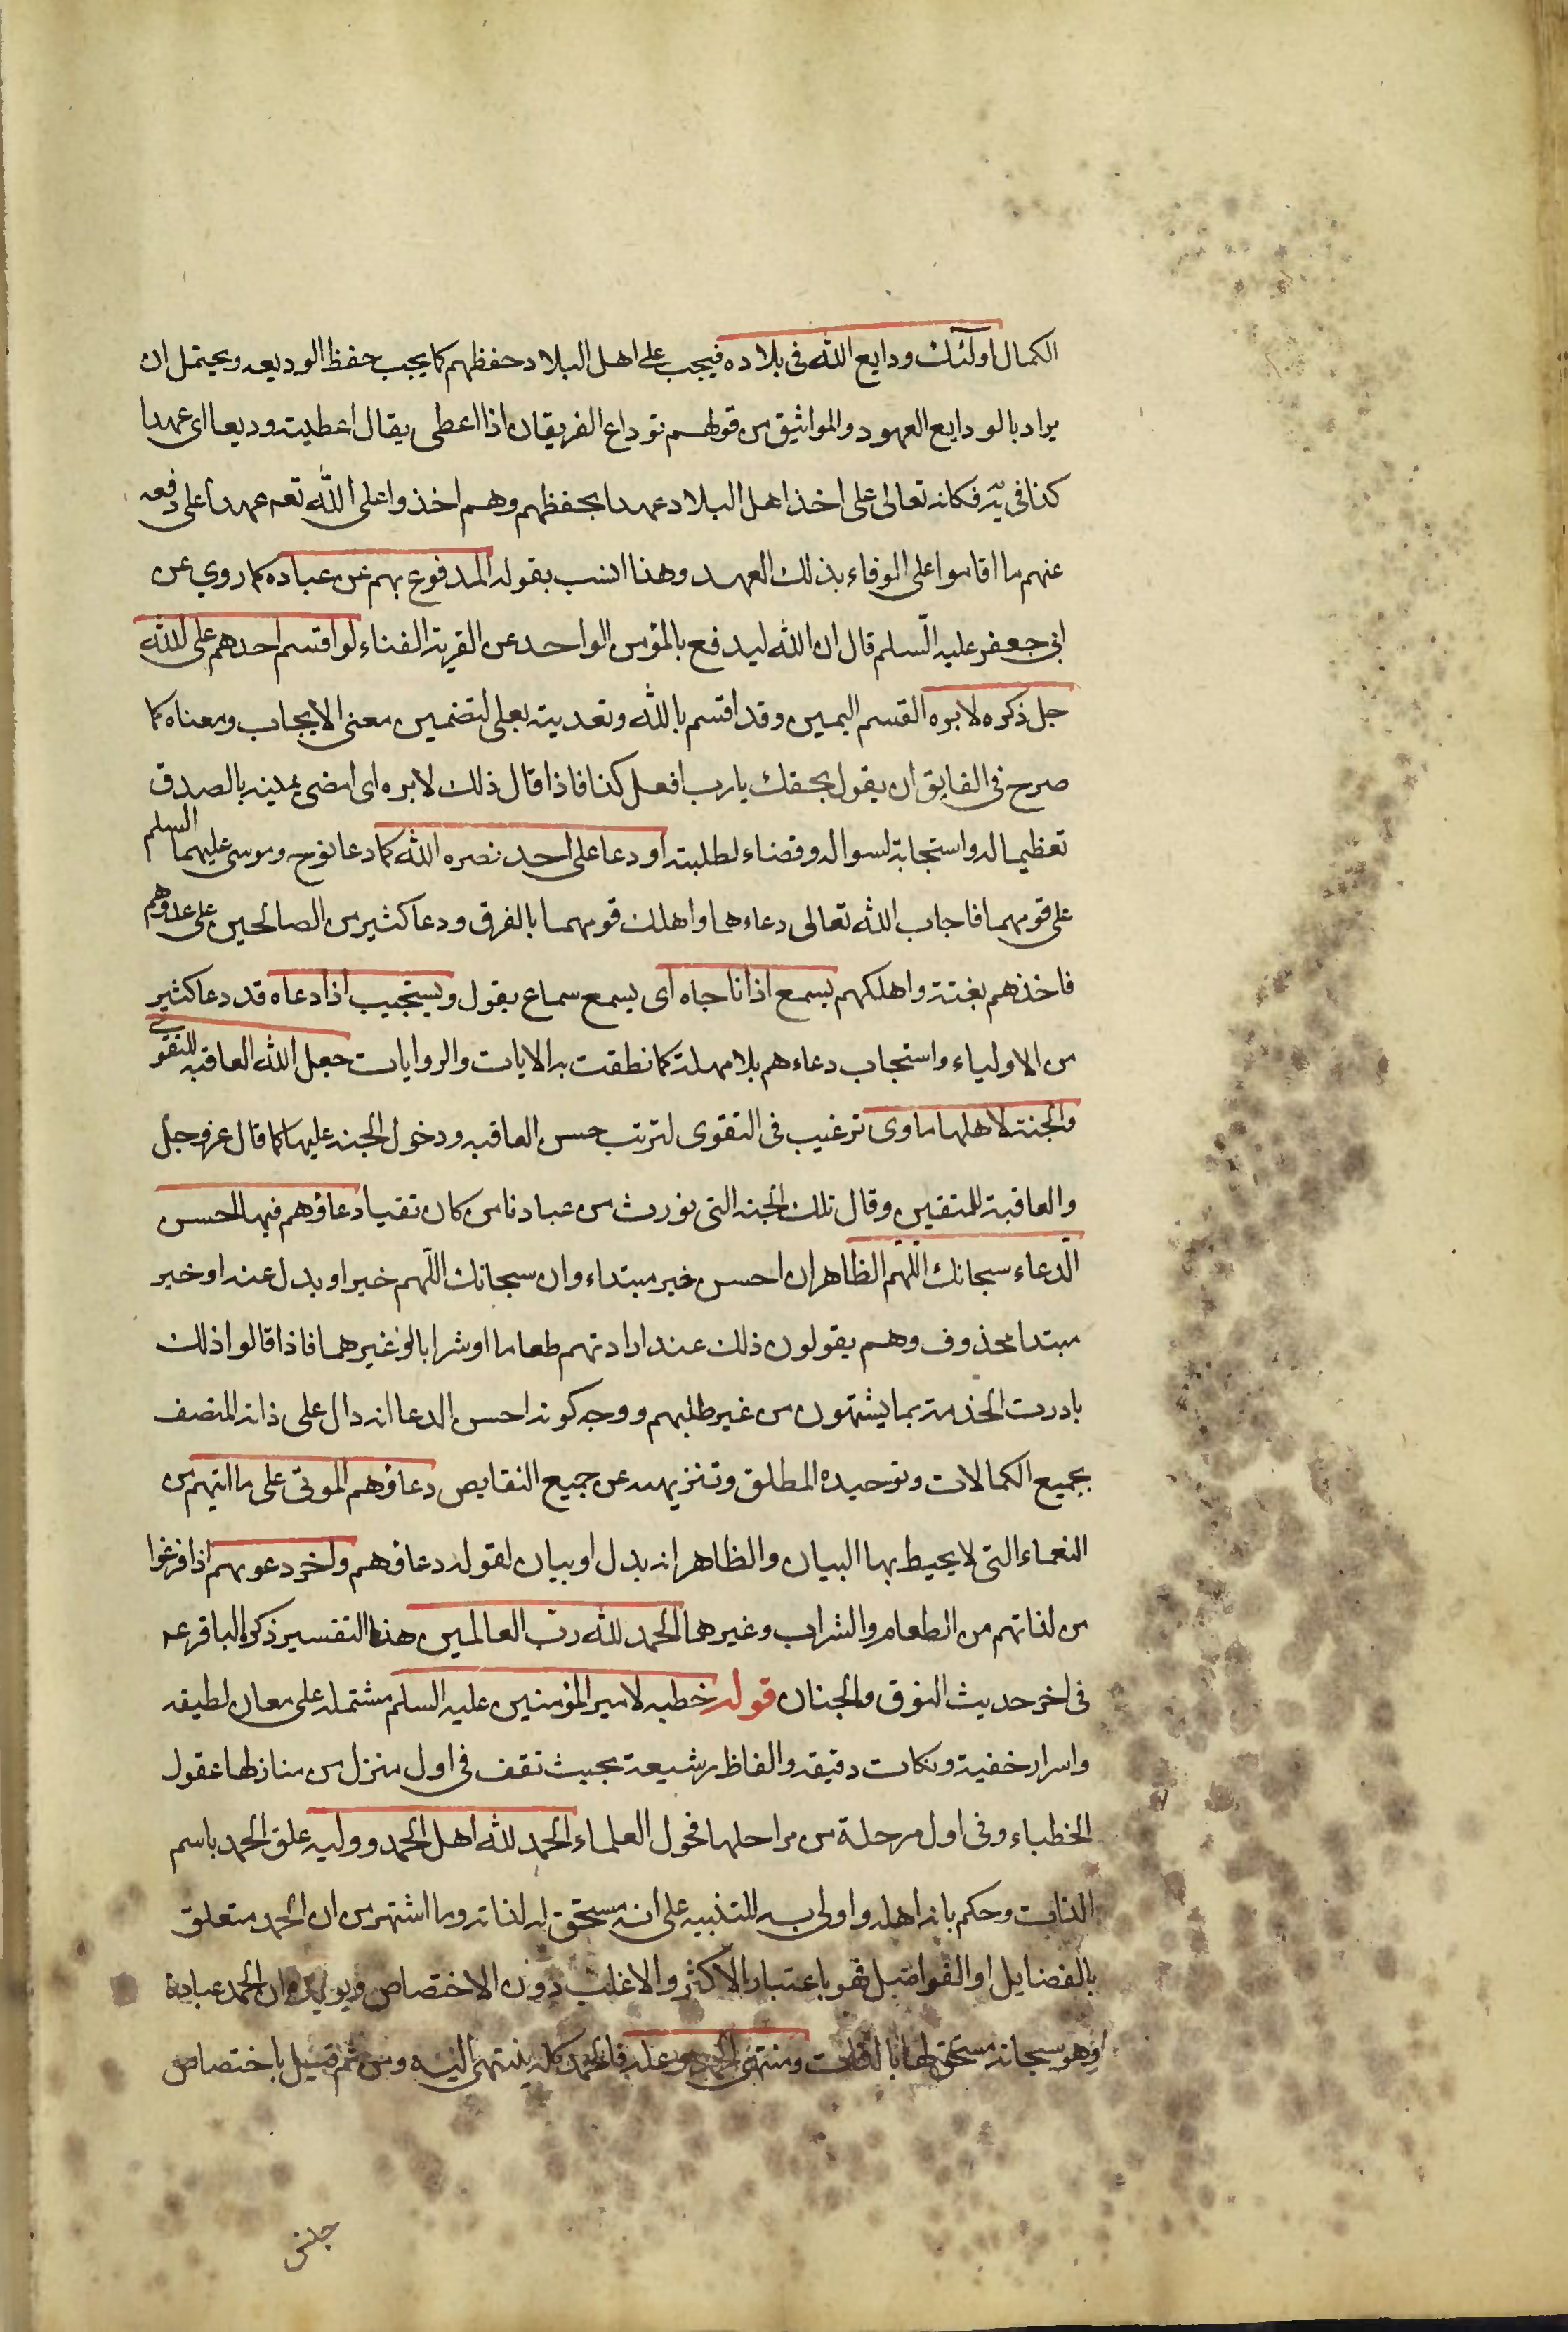 الكمال اولئك ودايع الله فى بلاده فيجب على اهل البلاد حفظهم كما يجب حفظ الوديعه ويحتمل ان
يراد بالودايع العهود والمواثيق من قولهم توداع الفريقان اذا اعطى يقال اعطيت وديعا اى عهدا
كذا فى يَه فكانه تعالى على اخذ اهل البلاد عهدا بحفظهم وهم اخذوا على الله تعم عهدا على دفعه
عنهم ما اقاموا على الوفاء بذلك العهد وهذا انسب بقوله المدفوع بهم عن عباده كما روي عن
ابى جعفر عليه السلم قال ان الله ليدفع بالمؤمن الواحد عن القرية الفناء لو اقسم احدهم على الله
جل ذكره لابره القسم اليمين وقد اقسم بالله وتعديته بعلى لتضمين معنى الايجاب ومعناه كما
صرح فى الفايق ان يقول بحقك يا رب افعل كذا فاذا قال ذلك لابره اى امضى يمينه بالصدق
تعظيما له واستجابة لسواله وقضاء لطلبته او دعا على احد نصره الله كما دعا نوح وموسى عليهما السلم
على قومهما فاجاب الله تعالى دعاءهما واهلك قومهما بالغرق ودعا كثير من الصالحين على عدوهم
فاخذهم بغتة واهلكهم يسمع اذا ناجاه اى يسمع سماع بقول ويستجيب اذا دعاه قد دعا كثير
من الاولياء واستجاب دعاءهم بلا مهلة كما نطقت به الايات والروايات جعل الله العاقبه للتقوى
والجنة لاهلها ماوى ترغيب فى التقوى لترتب حسن العاقبه ودخول الجنه عليها كما قال عز وجل
والعاقبة للمتقين وقال تلك الجنه التى نورث من عبادنا من كان تقيا دعاؤهم فيها احسن
الدعاء سبحانك اللهم الظاهر ان احسن خبر مبتداء وان سبحانك اللهم خبر او بدل عنه او خبر
مبتدا محذوف وهم يقولون ذلك عند ارادتهم طعاما او شرابا او غيرهما فاذا قالوا ذلك
بادرت الخدمة بما يشتهون من غير طلبهم ووجه كونه احسن الدعا انه دال على ذاته المتصف
بجميع الكمالات وتوحيده المطلق وتنزيهه عن جميع النقايص دعاؤهم المولى على ما اتيهم من
النعماء التى لا يحيط بها البيان والظاهر انه بدل او بيان لقوله دعاؤهم واخر دعوبهم اذا فرغوا
من لذاتهم من الطعام والشراب وغيرهما الحمد لله رب العالمين هذا التفسير ذكره الباقر عه
فى اخر حديث النوق والجنان قوله خطبه لامير المؤمنين عليه السلم مشتمله على معان لطيفه
واسرار خفية ونكات دقيقه والفاظ رشيعة بحيث تقف فى اول منزل من منازلها عقول
الخطباء وفى اول مرحلة من مراحلها فحول العلماء الحمد لله اهل الحمد ووليه علق الحمد باسم
الذات وحكم بانه اهله واولى به للتنبيه على انه مستحق له لذاته وما اشتهر من ان الحمد متعلق
بالفضايل او الفواضل فهو باعتبار الاكثر والاغلب دون الاختصاص ويويده ان الحمد عبادة
وهو سبحانه مستحق لها بالذات ومنتهى الحمد ومحله فالحمد كله ينتهى اليه ومن ثم قيل باختصاص